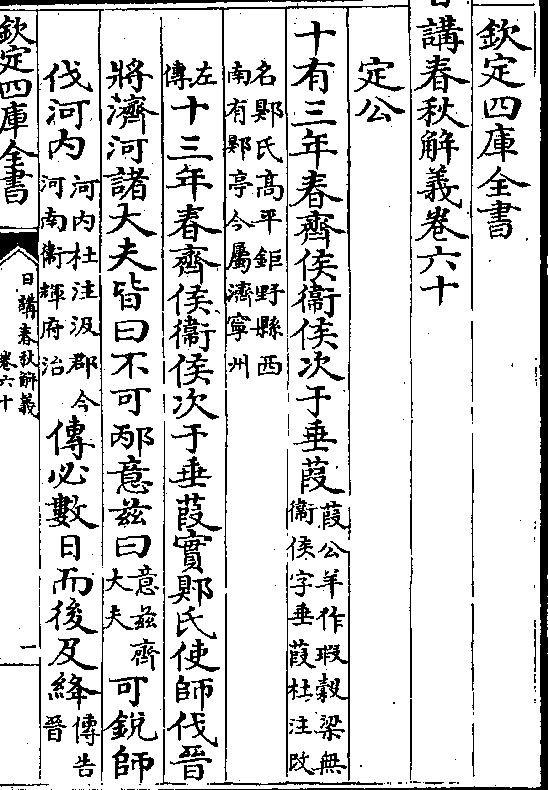 欽定四庫全書
日講春秋解義卷六十
定公
十有三年春齊侯衞侯次于垂葭葭公羊作瑕穀梁無衞侯字垂葭杜注改
名郹氏高平鉅野縣西南有郹亭今屬濟寧州
左傳十三年春齊侯衞侯次于垂葭實郹氏使師伐晉
將濟河諸大夫皆曰不可邴意茲曰意茲齊大夫可銳師
伐河内河内杜注汲郡今河南衞輝府治傳必數日而後及絳傳告晉
欽定四庫全書
日講春秋解義
卷六十
一